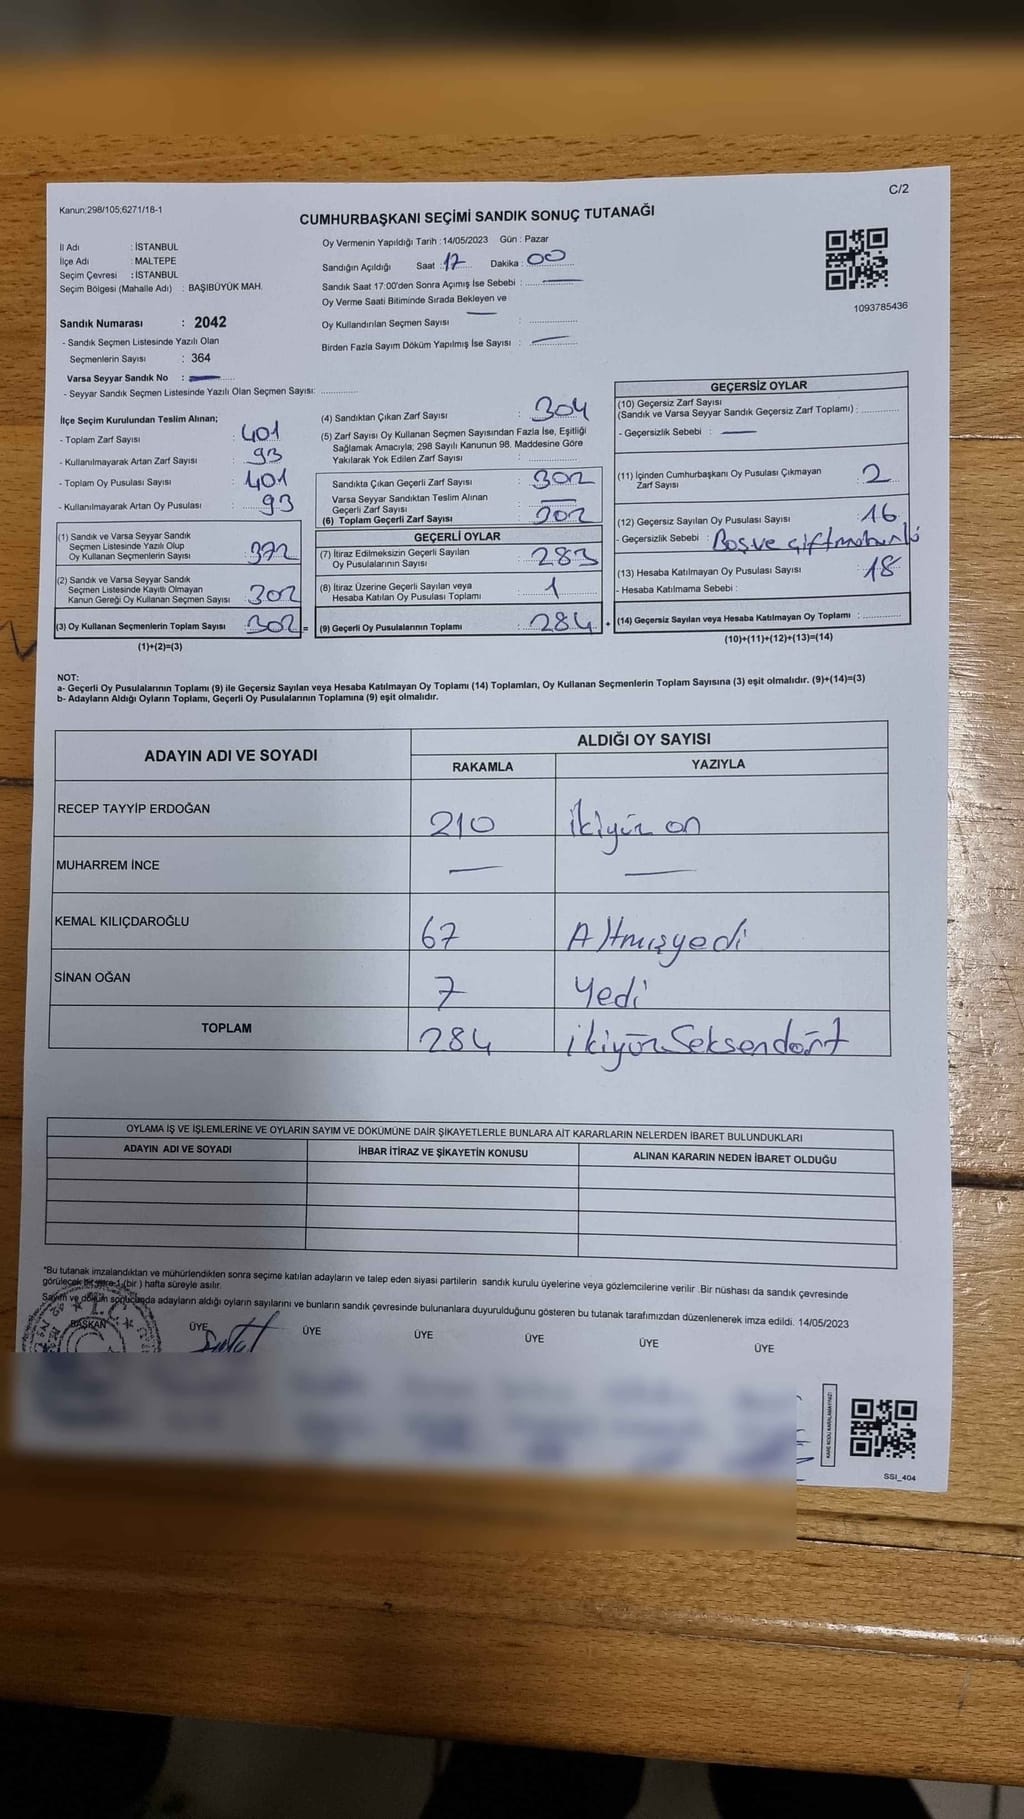 C/2
Kanun:298/105;6271/18-1
CUMHURBAŞKANI SEÇİMİ SANDIK SONUÇ TUTANAĞI
İl Adı : İSTANBUL
İlçe Adı : MALTEPE
Seçim Çevresi : İSTANBUL
Seçim Bölgesi (Mahalle Adı) : BAŞIBÜYÜK MAH.
Sandık Numarası : 2042
- Sandık Seçmen Listesinde Yazılı Olan
Seçmenlerin Sayısı : 364
Varsa Seyyar Sandık No :
- Seyyar Sandık Seçmen Listesinde Yazılı Olan Seçmen Sayısı:
Oy Vermenin Yapıldığı Tarih :14/05/2023 Gün : Pazar
Sandığın Açıldığı Saat : 17 Dakika : 00
Sandık Saat 17:00'den Sonra Açımış İse Sebebi :
Oy Verme Saati Bitiminde Sırada Bekleyen ve
Oy Kullandırılan Seçmen Sayısı :
Birden Fazla Sayım Döküm Yapılmış İse Sayısı :
1093785436
İlçe Seçim Kurulundan Teslim Alınan;
- Toplam Zarf Sayısı : 401
- Kullanılmayarak Artan Zarf Sayısı : 93
- Toplam Oy Pusulası Sayısı : 401
- Kullanılmayarak Artan Oy Pusulası : 93
(1) Sandık ve Varsa Seyyar Sandık
Seçmen Listesinde Yazılı Olup
Oy Kullanan Seçmenlerin Sayısı : 372
(2) Sandık ve Varsa Seyyar Sandık
Seçmen Listesinde Kayıtlı Olmayan
Kanun Gereği Oy Kullanan Seçmen Sayısı : 302
(3) Oy Kullanan Seçmenlerin Toplam Sayısı : 302 =
(1)+(2)=(3)
(4) Sandıktan Çıkan Zarf Sayısı : 304
(5) Zarf Sayısı Oy Kullanan Seçmen Sayısından Fazla İse, Eşitliği
Sağlamak Amacıyla; 298 Sayılı Kanunun 98. Maddesine Göre
Yakılarak Yok Edilen Zarf Sayısı :
Sandıkta Çıkan Geçerli Zarf Sayısı : 302
Varsa Seyyar Sandıktan Teslim Alınan
Geçerli Zarf Sayısı :
(6) Toplam Geçerli Zarf Sayısı : 302
GEÇERLİ OYLAR
(7) İtiraz Edilmeksizin Geçerli Sayılan
Oy Pusulalarının Sayısı : 283
(8) İtiraz Üzerine Geçerli Sayılan veya
Hesaba Katılan Oy Pusulası Toplamı : 1
(9) Geçerli Oy Pusulalarının Toplamı : 284
GEÇERSİZ OYLAR
(10) Geçersiz Zarf Sayısı
(Sandık ve Varsa Seyyar Sandık Geçersiz Zarf Toplamı) :
- Geçersizlik Sebebi :
(11) İçinden Cumhurbaşkanı Oy Pusulası Çıkmayan
Zarf Sayısı : 2
(12) Geçersiz Sayılan Oy Pusulası Sayısı : 16
- Geçersizlik Sebebi : Boş ve çift mühürlü
(13) Hesaba Katılmayan Oy Pusulası Sayısı : 18
- Hesaba Katılmama Sebebi :
(14) Geçersiz Sayılan veya Hesaba Katılmayan Oy Toplamı :
(10)+(11)+(12)+(13)=(14)
NOT:
a- Geçerli Oy Pusulalarının Toplamı (9) ile Geçersiz Sayılan veya Hesaba Katılmayan Oy Toplamı (14) Toplamları, Oy Kullanan Seçmenlerin Toplam Sayısına (3) eşit olmalıdır. (9)+(14)=(3)
b- Adayların Aldığı Oyların Toplamı, Geçerli Oy Pusulalarının Toplamına (9) eşit olmalıdır.
ADAYIN ADI VE SOYADI
ALDIĞI OY SAYISI
RAKAMLA YAZIYLA
RECEP TAYYİP ERDOĞAN 210 ikiyüz on
MUHARREM İNCE
KEMAL KILIÇDAROĞLU 67 Altmışyedi
SİNAN OĞAN 7 Yedi
TOPLAM 284 ikiyüzSeksendört
OYLAMA İŞ VE İŞLEMLERİNE VE OYLARIN SAYIM VE DÖKÜMÜNE DAİR ŞİKAYETLERLE BUNLARA AİT KARARLARIN NELERDEN İBARET BULUNDUKLARI
ADAYIN ADI VE SOYADI İHBAR İTİRAZ VE ŞİKAYETİN KONUSU ALINAN KARARIN NEDEN İBARET OLDUĞU
*Bu tutanak imzalandıktan ve mühürlendikten sonra seçime katılan adayların ve talep eden siyasi partilerin sandık kurulu üyelerine veya gözlemcilerine verilir. Bir nüshası da sandık çevresinde
görülecek bir yere 1 (bir ) hafta süreyle asılır.
Sayım ve döküm sonucunda adayların aldığı oyların sayılarını ve bunların sandık çevresinde bulunanlara duyurulduğunu gösteren bu tutanak tarafımızdan düzenlenerek imza edildi. 14/05/2023
BAŞKAN ÜYE ÜYE ÜYE ÜYE ÜYE ÜYE
KARE KODU KARALAMAYINIZ!
SSI_404